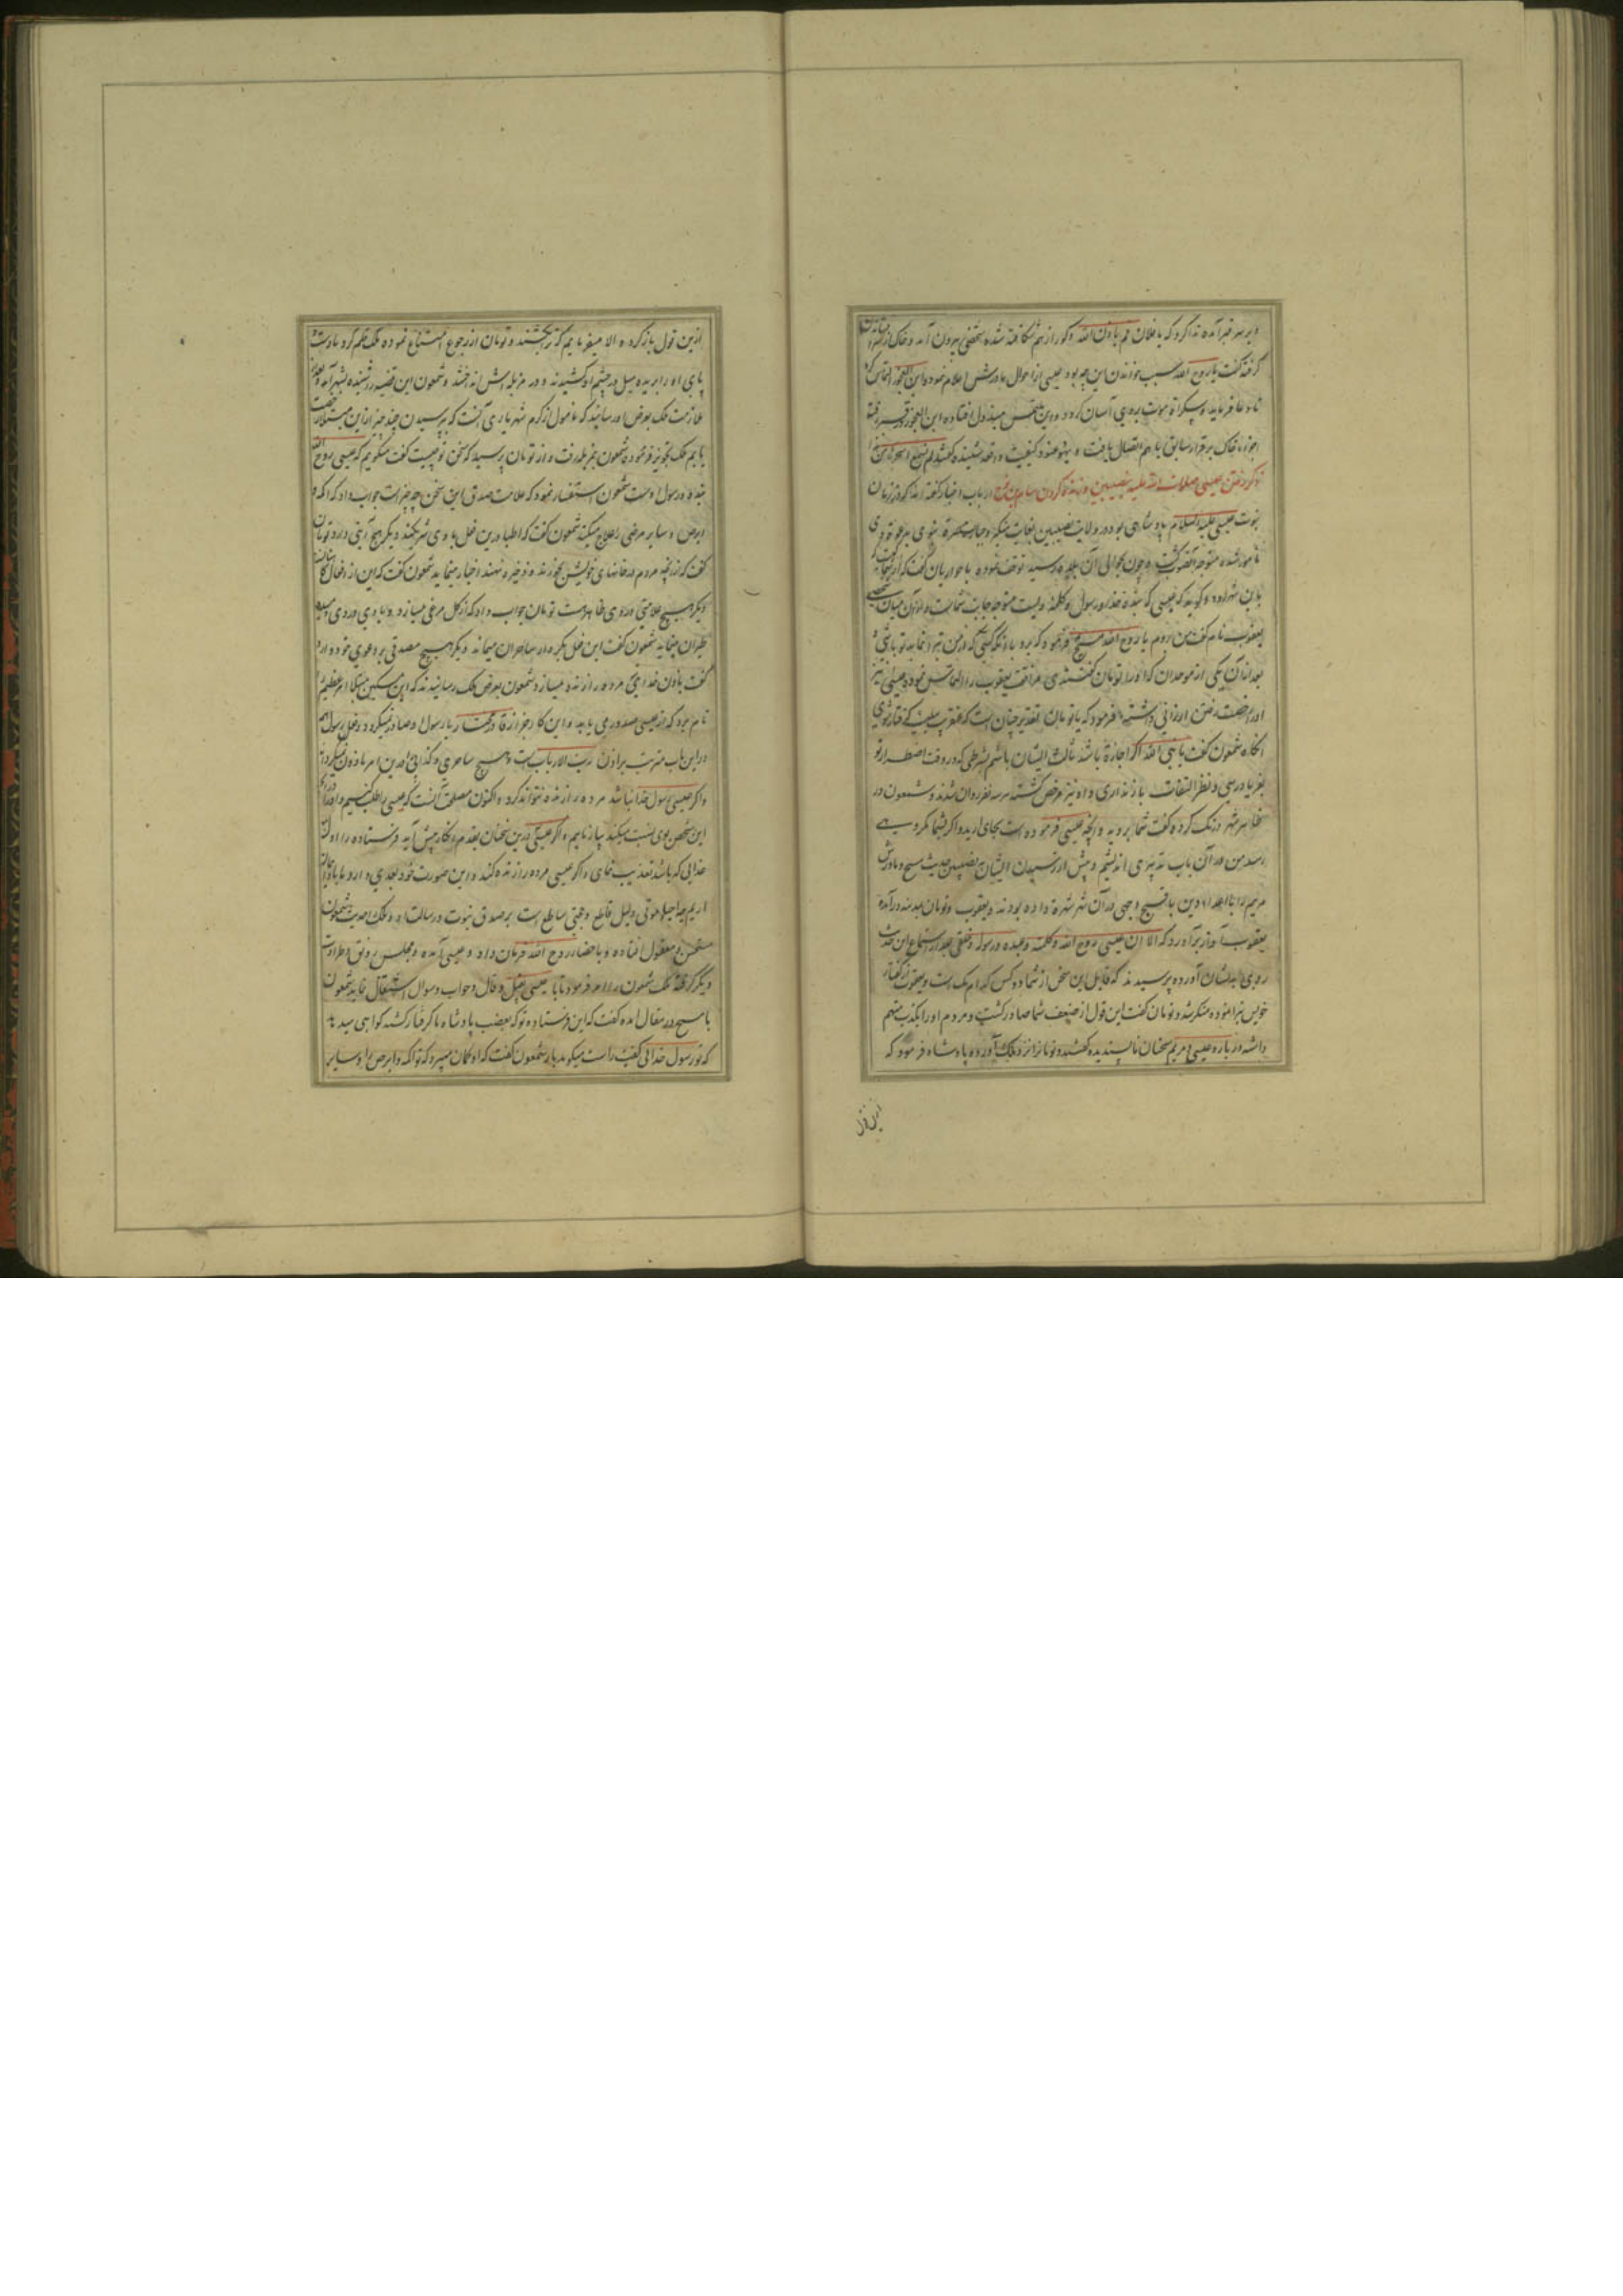 و بر سر قبر آمده ندا کرد که یا فلان قم باذن الله و گور از هم شکافته شده شخصی بیرون آمد و خاک از
گرفته گفت یا روح الله سبب خواندن این چه بود عیسی از احوال مادرش اعلام نمود و این العجوز التماس کرد
تا دعا فرماید و سکراة موت بر وی آسان گردد و این ملتمس مبذول افتاده این العجوز
اجزاء خاک بر قرار سابق با هم اتصال یافت و یهود عنود کیفیت واقعه شنیده گفتند لم نسمع اسحر من هذا
ذکر رفتن عیسی صلوات الله علیه بنصیبین و زنده کردن سام بن نوح ارباب اخبار گفته اند که در زمان
نبوت عیسی علیه السلام پادشاهی بود در ولایت نصیبین بغایت متکبر و جبار حضرت نبوی بدعوت وی
مامور شده متوجه آنصوب گشت و چون بحوالی آن بلده رسید توقف نموده با حواریان گفت که از شما کیست که
باین شهر رود و گوید که عیسی که بنده خدا و رسول و کلمه ویست متوجه جانب شماست و از آن میان شخصی
یعقوب نام گفت من روم یا روح الله مسیح فرمود که برو با آنکه اول کسی که از من تبرا نماید تو باشی و
بعد از آن یکی از موحدان که او را تومان گفتندی مرافقت یعقوب را التماس نمود و عیسی نیز
او را رخصت رفتن ارزانی داشته فرمود که یا تومان تقدیر چنان است که عنقریب ببلیه گرفتار شوی
آنگاه شمعون گفت یا نبی الله اگر اجازة باشد ثالث ایشان باشم بشرطی که در وقت اضطرار تو
بفریاد رسی و نظر التفات باز نداری و او نیز مرخص گشته هر سه نفر روان شدند و شمعون در
ظاهر شهر درنگ کرده گفت شما بروید و آنچه عیسی فرموده است بجای آرید و اگر بشما مکروهی
رسد من در آن باب تدبیری اندیشم و پیش از رسیدن ایشان به نصیبین حدیث مسیح و مادرش
مریم را اعداء دین باقبح وجهی در آن شهر شهرة داده بودند و یعقوب و تومان بمدینه درآمده
یعقوب آواز برآورد که الا ان عیسی روح الله و کلمته و عبده و رسوله و خلقی بعد از استماع این حدیث
روی بدیشان آورده پرسیدند که قایل این سخن از شما دو کس کدام یک است و یعقوب از گفتار
خویش تبرا نموده منکر شد و تومان گفت این قول از ضعیف شما صادر گشت و مردم او را بکذب متهم
داشته در باره عیسی و مریم سخنان ناپسندیده گفتند و تومانرا نزد ملک آورده پادشاه فرمود که
ازین قول
ازین قول باز گرد و الا میفرمایم که ترا بکشند و تومان از رجوع امتناع نموده ملک حکم کرد تا دست و
پای او را بریده میل در چشم او کشیدند و در مزبله اش انداختند و شمعون این قضیه را شنیده بشهر آمد و بعد
ملازمت ملک بعرض او رسانید که مامول از کرم شهریاری آنست که بپرسیدن چند چیز ازین مبتلا رخصت
یابم ملک تجویز فرموده شمعون بمزبله رفت و از تومان پرسید که سخن تو چیست گفت میگویم که عیسی روح الله
بنده و رسول اوست شمعون استفسار نمود که علامت صدق این سخن چه چیز است جواب داد که اکمه و
ابرص و سایر مرضی را علاج میکند شمعون گفت که اطبا درین فعل با وی شریکند دیگر هیچ آیتی دارد تومان
گفت که از آنچه مردم در خانهای خویش بخورند و ذخیره نهند اخبار مینماید شمعون گفت که این از افعال
دیگر هیچ علامتی در وی ظاهر هست تومان جواب داد که از گل مرغی میسازد و باد در وی دمیده
طیران مینماید شمعون گفت این فعل بکردار ساحران میماند دیگر هیچ مصدقی بر دعوی خود دارد
گفت باذن خدای مرده را زنده میسازد شمعون بعرض ملک رسانید که این مسکین مبتلا امر عظیم را
نام برد که از عیسی صدور می یابد و این کار جز از قادر مختار یا رسول او صادر نمیگردد و فعل رسول هم
در این باب مترتب بر اذن رب الارباب است و هیچ ساحری و کذابی درین امر ماذون نمیگردد
و اگر عیسی رسول خدا نباشد مرده را زنده نتواند کرد و اکنون مصلحت آنست که عیسی را طلب کنیم و آنچه
این شخص بوی نسبت میکند بیازماییم و اگر عیسی درین سخنان بقدم انکار پیش آید فرستاده را اول
عذابی که باشد تعذیب نمای و اگر عیسی مرده را زنده کند و این صورت خود بعیدی دارد ما باو ایمان
آریم چه احیاء موتی دلیل قاطع و حجتی ساطع است بر صدق نبوت و رسالت او و ملک حدیث شمعون
مستحسن و معقول افتاده و باحضار روح الله فرمان داد و عیسی آمده و مجلس رونق و طراوت
دیگر گرفته ملک شمعون را امر فرمود تا با عیسی بقیل و قال و جواب و سوال اشتغال نماید شمعون
با مسیح در مقال آمده گفت که این فرستاده تو که بغضب پادشاه ما گرفتار گشته گواهی میدهد
که تو رسول خدائی گفت راست میگوید باز شمعون گفت که او گمان میبرد که تو اکمه و ابرص را و سایر